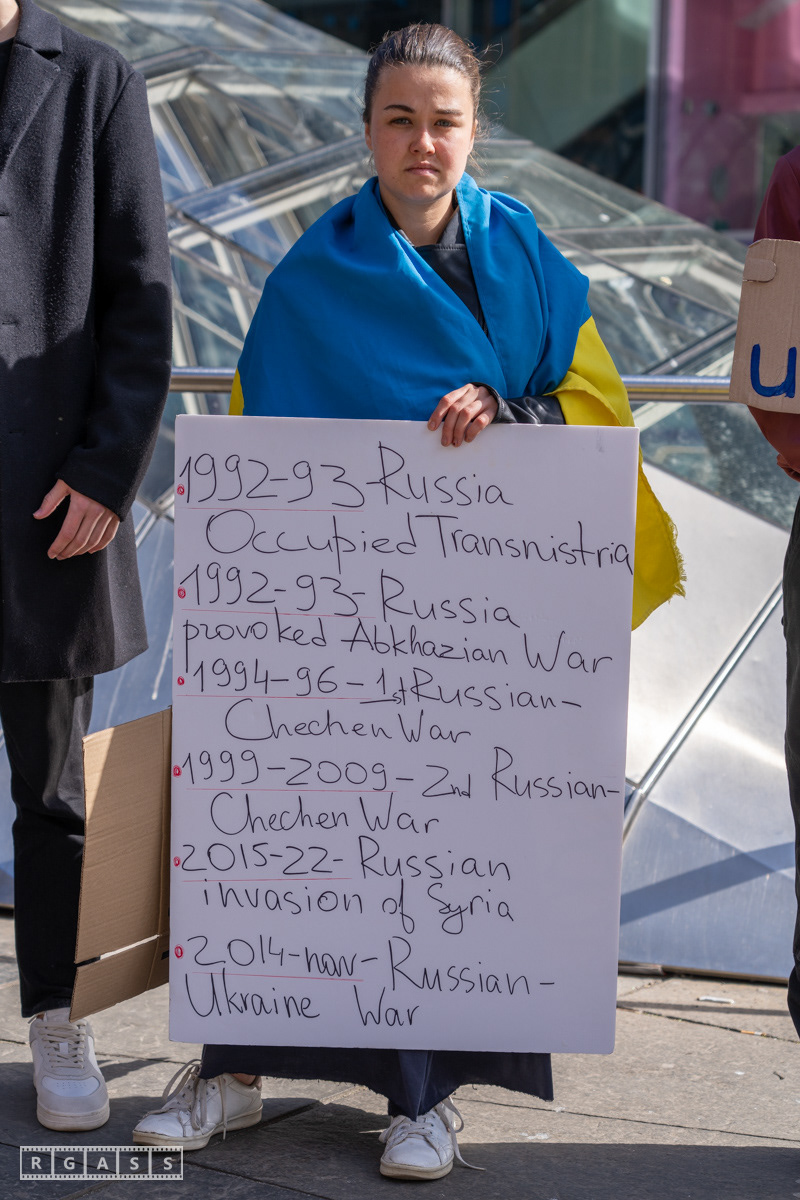 1992-93-Russia
Occupied Transnistria
1992-93-Russia
provoked Abkhazian War
1994-96-1st Russian-
Chechen War
1999-2009-2nd Russian-
Chechen War
2015-22-Russian
invasion of Syria
2014-now-Russian-
Ukraine War
U
RGASS